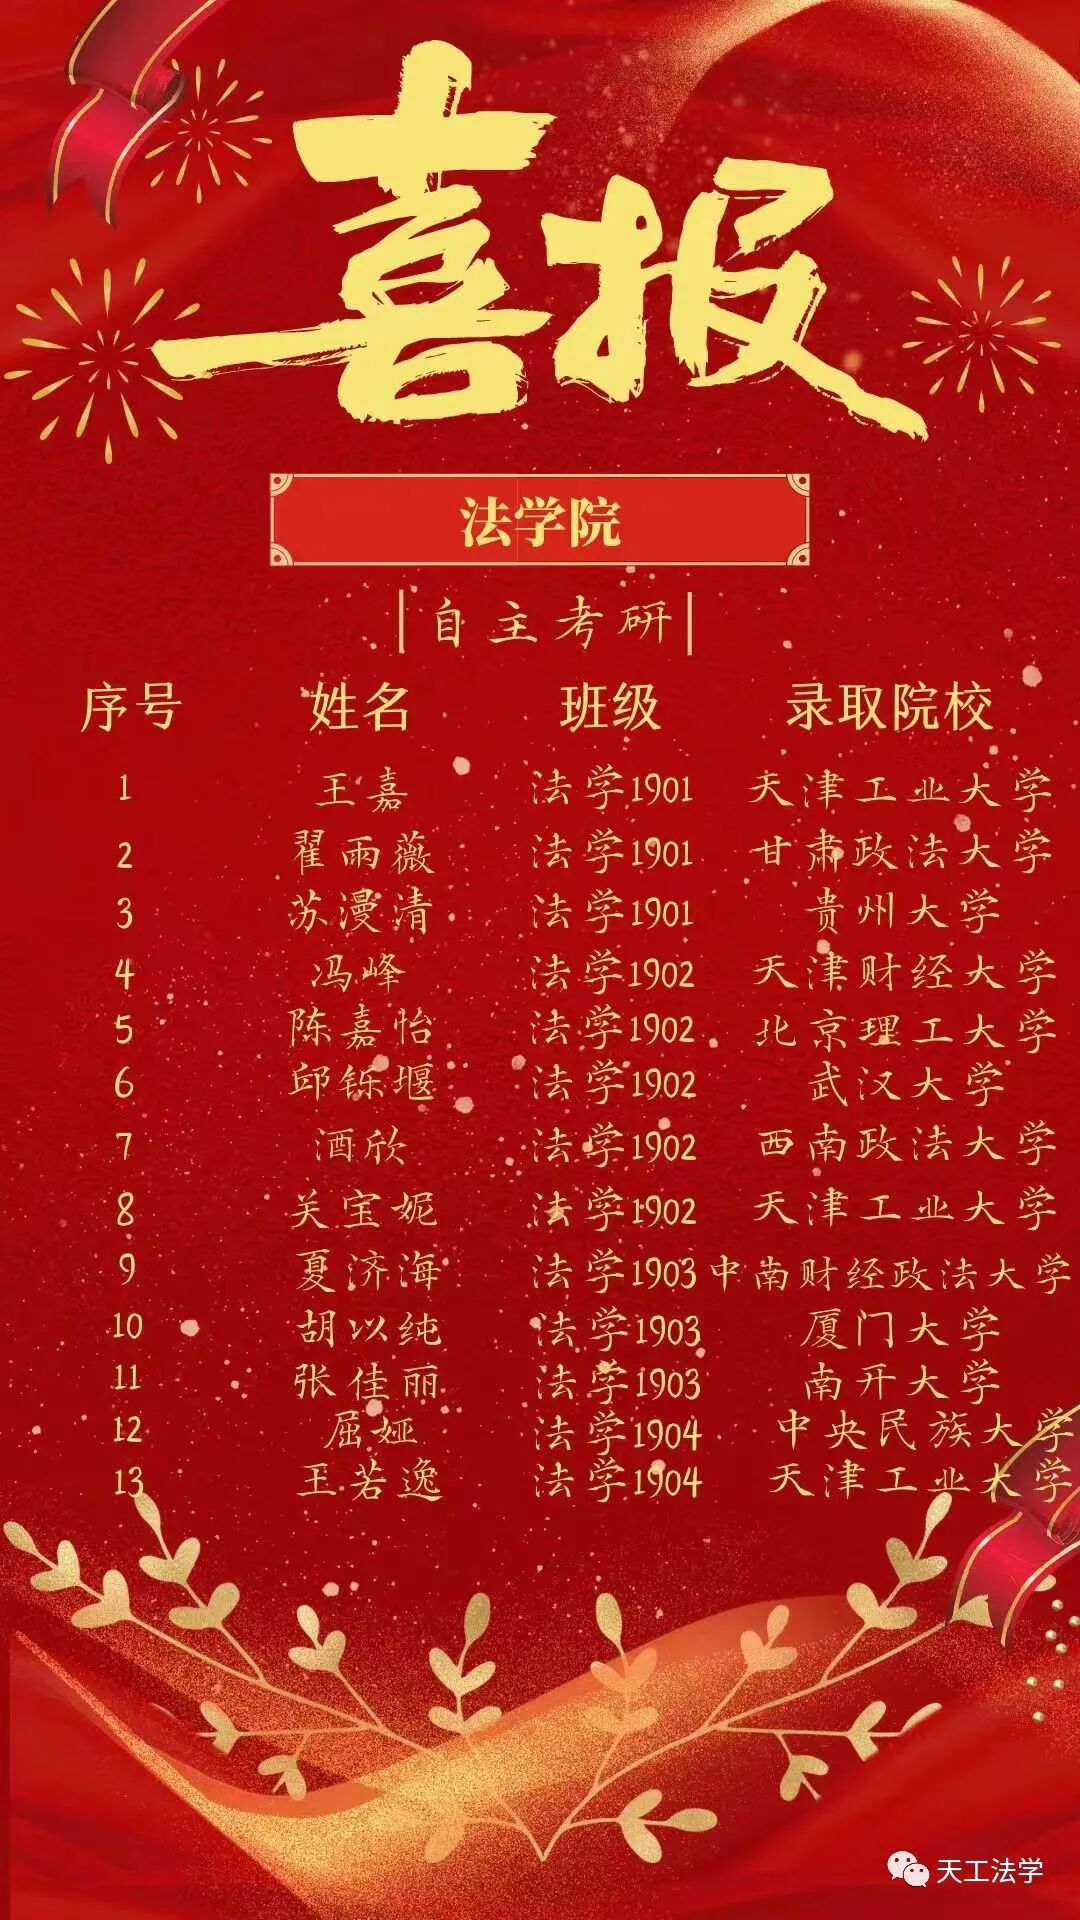 喜报
法学院
自主考研
序号 姓名 班级 录取院校
1 王嘉 法学1901 天津工业大学
2 翟雨薇 法学1901 甘肃政法大学
3 苏漫清 法学1901 贵州大学
4 冯峰 法学1902 天津财经大学
5 陈嘉怡 法学1902 北京理工大学
6 邱铄堰 法学1902 武汉大学
7 酒欣 法学1902 西南政法大学
8 关宝妮 法学1902 天津工业大学
9 夏济海 法学1903 中南财经政法大学
10 胡以纯 法学1903 厦门大学
11 张佳丽 法学1903 南开大学
12 屈娅 法学1904 中央民族大学
13 王若逸 法学1904 天津工业大学
天工法学